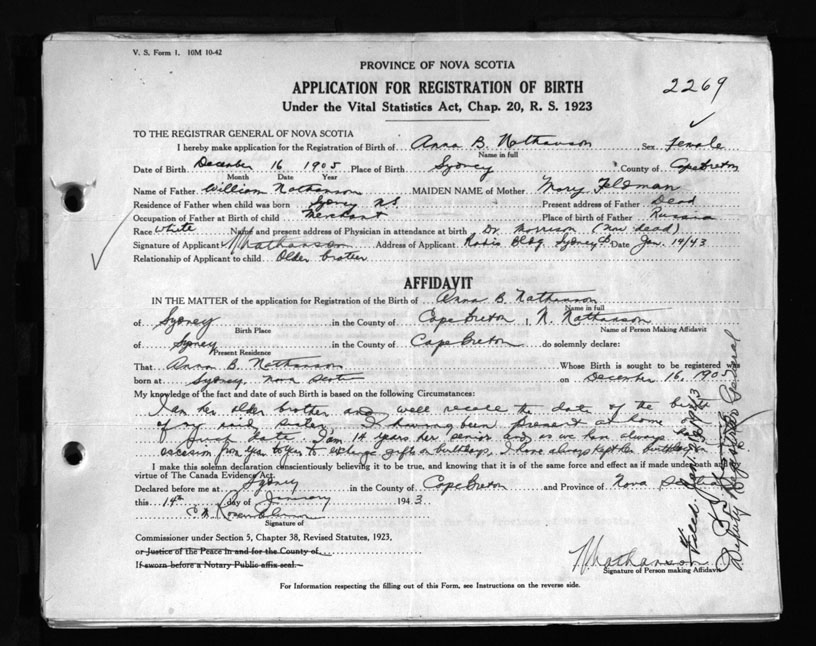 V. S. Form 1. 10M 10-42
PROVINCE OF NOVA SCOTIA
APPLICATION FOR REGISTRATION OF BIRTH
2269
Under the Vital Statistics Act, Chap. 20, R. S. 1923
TO THE REGISTRAR GENERAL OF NOVA SCOTIA
I hereby make application for the Registration of Birth of Anna B. Nathanson Sex Female
Name in full
Date of Birth December 16 1905 Place of Birth Sydney County of Cape Breton
Month Date Year
Name of Father William Nathanson MAIDEN NAME of Mother Mary Feldman
Residence of Father when child was born Sydney N.S. Present address of Father Dead
Occupation of Father at Birth of child Merchant Place of birth of Father Russia
Race White Name and present address of Physician in attendance at birth Dr. Morrison (now dead)
Signature of Applicant N Nathanson Address of Applicant Radio Bldg Sydney Date Jan. 14/43
Relationship of Applicant to child Older brother
AFFIDAVIT
IN THE MATTER of the application for Registration of the Birth of Anna B. Nathanson
Name in full
of Sydney in the County of Cape Breton I, N. Nathanson
Birth Place Name of Person Making Affidavit
of Sydney in the County of Cape Breton do solemnly declare:
Present Residence
That Anna B. Nathanson Whose Birth is sought to be registered was
born at Sydney, Nova Scotia on December 16, 1905
My knowledge of the fact and date of such Birth is based on the following Circumstances:
I am her older brother and well recall the date of the birth
of my said sister, I having been present at home on
date. I am 14 years her senior and as we have always had
occasion from year to year to exchange gifts on birthdays, I have always kept her birthday in
I make this solemn declaration conscientiously believing it to be true, and knowing that it is of the same force and effect as if made under oath and by
virtue of The Canada Evidence Act.
Declared before me at Sydney in the County of Cape Breton and Province of Nova Scotia
this 14th day of January 1943
Signature of
Commissioner under Section 5, Chapter 38, Revised Statutes, 1923,
or Justice of the Peace in and for the County of
If sworn before a Notary Public affix seal.
N Nathanson
Signature of Person making Affidavit
For Information respecting the filling out of this Form, see Instructions on the reverse side.
Filed Jan 1943
Deputy Registrar General